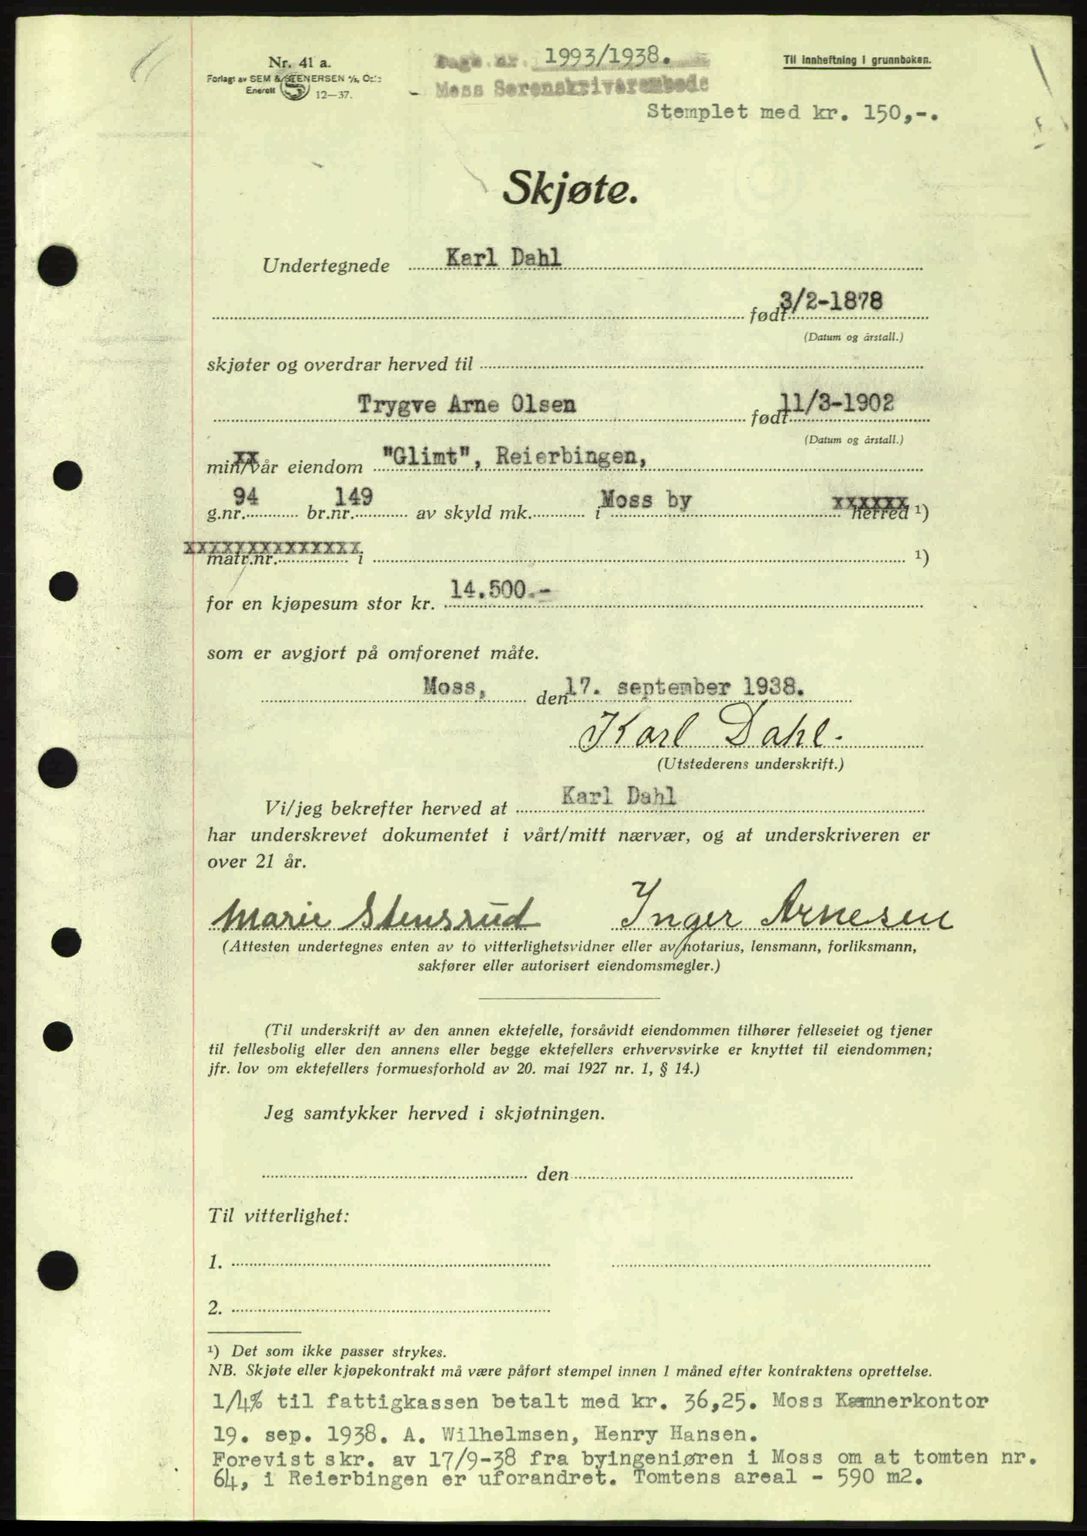 Nr. 41 a.
Forlagt av SEM & STENERSEN A/S, Oslo
Enerett 12—37.
Dagb. nr. 1993/1938.
Moss Sorenskriverembede
Til innheftning i grunnboken.
Stemplet med kr. 150,-.
Skjøte.
Undertegnede Karl Dahl
født 3/2-1878
(Datum og årstall.)
skjøter og overdrar herved til
Trygve Arne Olsen født 11/3-1902
(Datum og årstall.)
min/vår eiendom "Glimt", Reierbingen,
g.nr. 94 br.nr. 149 av skyld mk. i Moss by herred ¹)
matr.nr. i ¹)
for en kjøpesum stor kr. 14.500.-
som er avgjort på omforenet måte.
Moss, den 17. september 1938.
Karl Dahl.
(Utstederens underskrift.)
Vi/jeg bekrefter herved at Karl Dahl
har underskrevet dokumentet i vårt/mitt nærvær, og at underskriveren er
over 21 år.
Marie Stensrud Inger Arnesen
(Attesten undertegnes enten av to vitterlighetsvidner eller av notarius, lensmann, forliksmann,
sakfører eller autorisert eiendomsmegler.)
(Til underskrift av den annen ektefelle, forsåvidt eiendommen tilhører felleseiet og tjener
til fellesbolig eller den annens eller begge ektefellers erhvervsvirke er knyttet til eiendommen;
jfr. lov om ektefellers formuesforhold av 20. mai 1927 nr. 1, § 14.)
Jeg samtykker herved i skjøtningen.
den
Til vitterlighet:
1.
2.
¹) Det som ikke passer strykes.
NB. Skjøte eller kjøpekontrakt må være påført stempel innen 1 måned efter kontraktens oprettelse.
1/4% til fattigkassen betalt med kr. 36,25. Moss Kæmnerkontor
19. sep. 1938. A. Wilhelmsen, Henry Hansen.
Forevist skr. av 17/9-38 fra byingeniøren i Moss om at tomten nr.
64, i Reierbingen er uforandret. Tomtens areal - 590 m2.